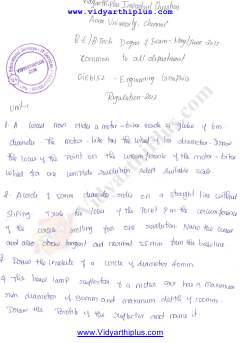 Vidyarthiplus Important Question
www.Vidyarthiplus.com
Anna University, Chennai
B.E/B.Tech Degree of Exam - May/June 2015
Common to all department
GE6152 - Engineering Graphics
Regulation-2013
VIDYARTHIPLUS.COM
Unit-1
1. A wheel man rides a motor-bike inside a globe of 6m
diameter. The motor-bike has the wheel of 1m diameter. Draw
the locus of the point on the circumference of the motor-bike
wheel for one complete revolution. Adopt suitable scale.
2. A circle of 50mm diameter rolls on a straight line without
slipping. Trace the locus of the point P on the circumference
of the circle rolling for one revolution. Name the curve
and also draw tangent and normal 35mm from the baseline.
3. Draw the involute of a circle of diameter 40mm.
4. The head lamp reflector of a motor car has a maximum
rim diameter of 130mm and maximum depth of 100mm.
Draw the profile of the reflector and name it.
www.Vidyarthiplus.com